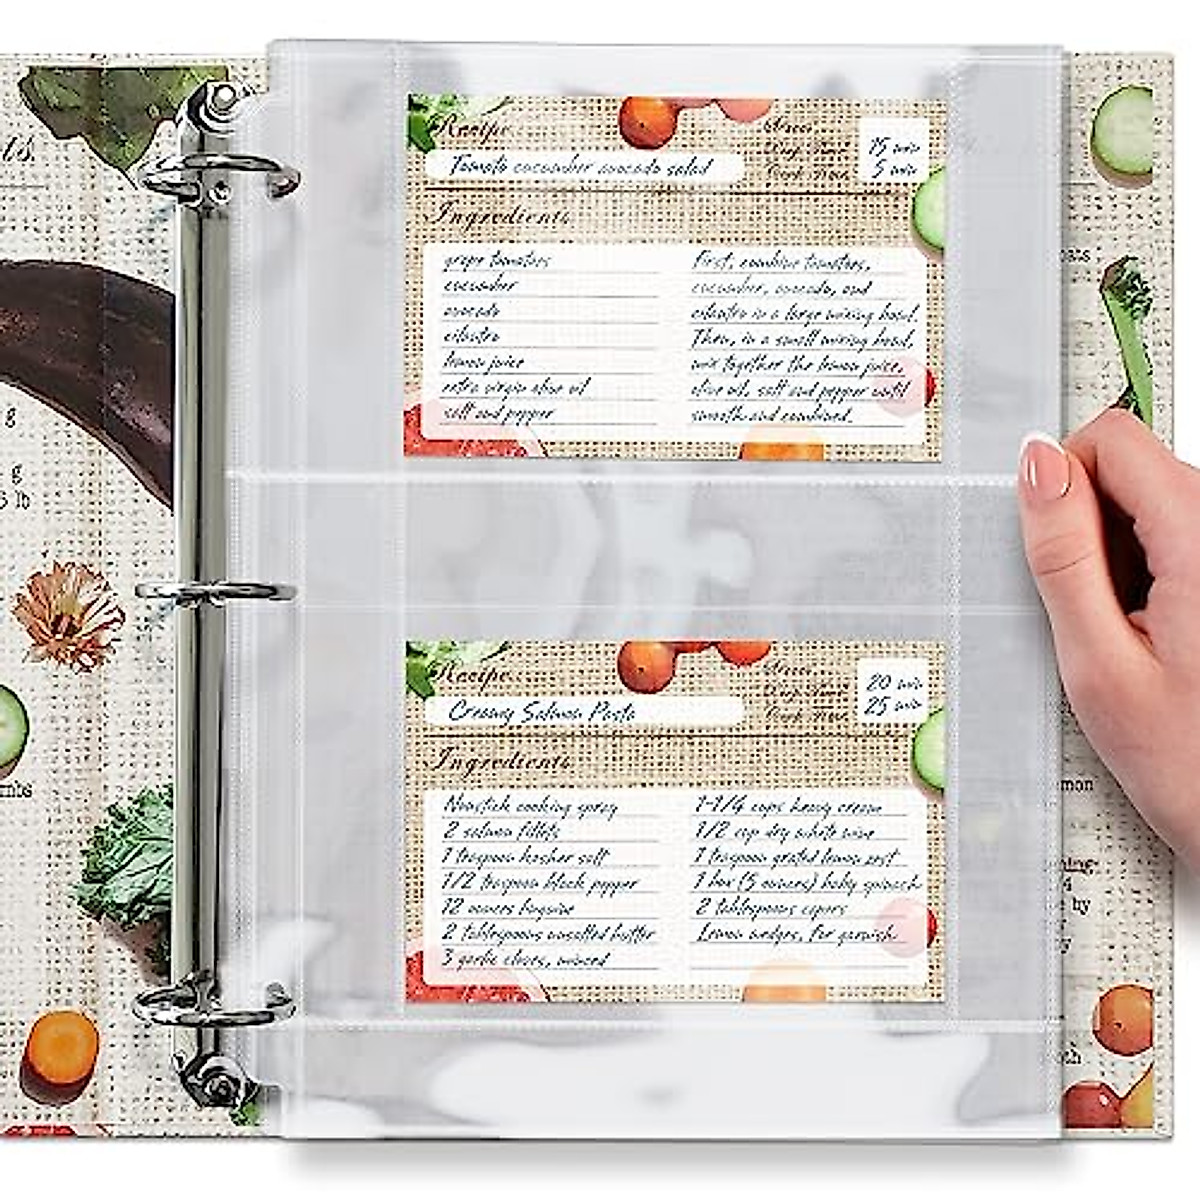 Recipe
Tomato cucumber avocado salad
Prep Time
Cook Time
15 min
5 min
Ingredients
grape tomatoes
cucumber
avocado
cilantro
lemon juice
extra virgin olive oil
salt and pepper
First, combine tomatoes,
cucumber, avocado, and
cilantro in a large mixing bowl.
Then, in a small mixing bowl,
mix together the lemon juice,
olive oil, salt and pepper until
smooth and combined.
Recipe
Creamy Salmon Pasta
Prep Time
Cook Time
20 min
25 min
Ingredients
Nonstick cooking spray
2 salmon fillets
1 teaspoon kosher salt
1/2 teaspoon black pepper
12 ounces linguine
2 tablespoons unsalted butter
3 garlic cloves, minced
1-1/4 cups heavy cream
1/2 cup dry white wine
1 teaspoon grated lemon zest
1 box (5 ounces) baby spinach
2 tablespoons capers
Lemon wedges, for garnish
g
g
lb
by